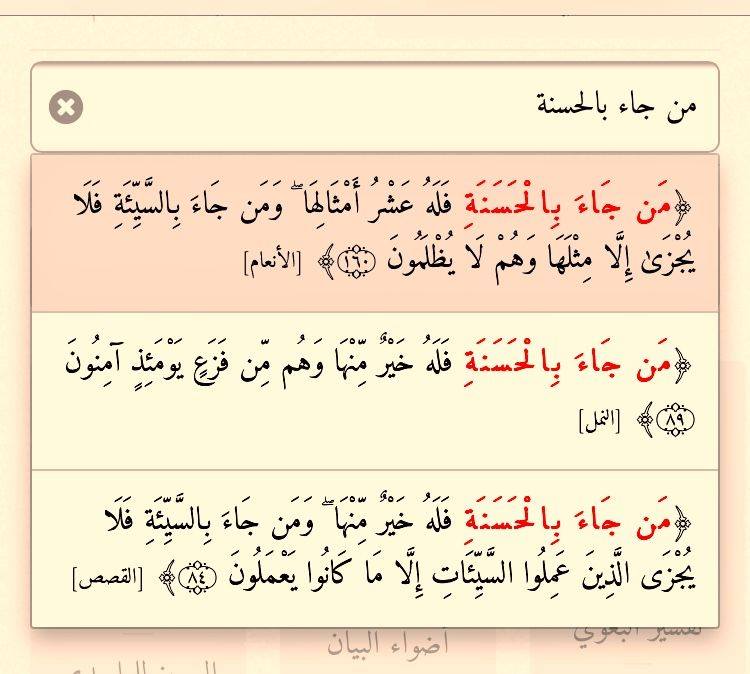 من جاء بالحسنة
﴿مَن جَاءَ بِالْحَسَنَةِ فَلَهُ عَشْرُ أَمْثَالِهَا ۖ وَمَن جَاءَ بِالسَّيِّئَةِ فَلَا
يُجْزَىٰ إِلَّا مِثْلَهَا وَهُمْ لَا يُظْلَمُونَ ١٦٠﴾ [الأنعام]
﴿مَن جَاءَ بِالْحَسَنَةِ فَلَهُ خَيْرٌ مِّنْهَا وَهُم مِّن فَزَعٍ يَوْمَئِذٍ آمِنُونَ
٨٩﴾ [النمل]
﴿مَن جَاءَ بِالْحَسَنَةِ فَلَهُ خَيْرٌ مِّنْهَا ۖ وَمَن جَاءَ بِالسَّيِّئَةِ فَلَا
يُجْزَى الَّذِينَ عَمِلُوا السَّيِّئَاتِ إِلَّا مَا كَانُوا يَعْمَلُونَ ٨٤﴾ [القصص]
تفسير البغوي
أضواء البيان